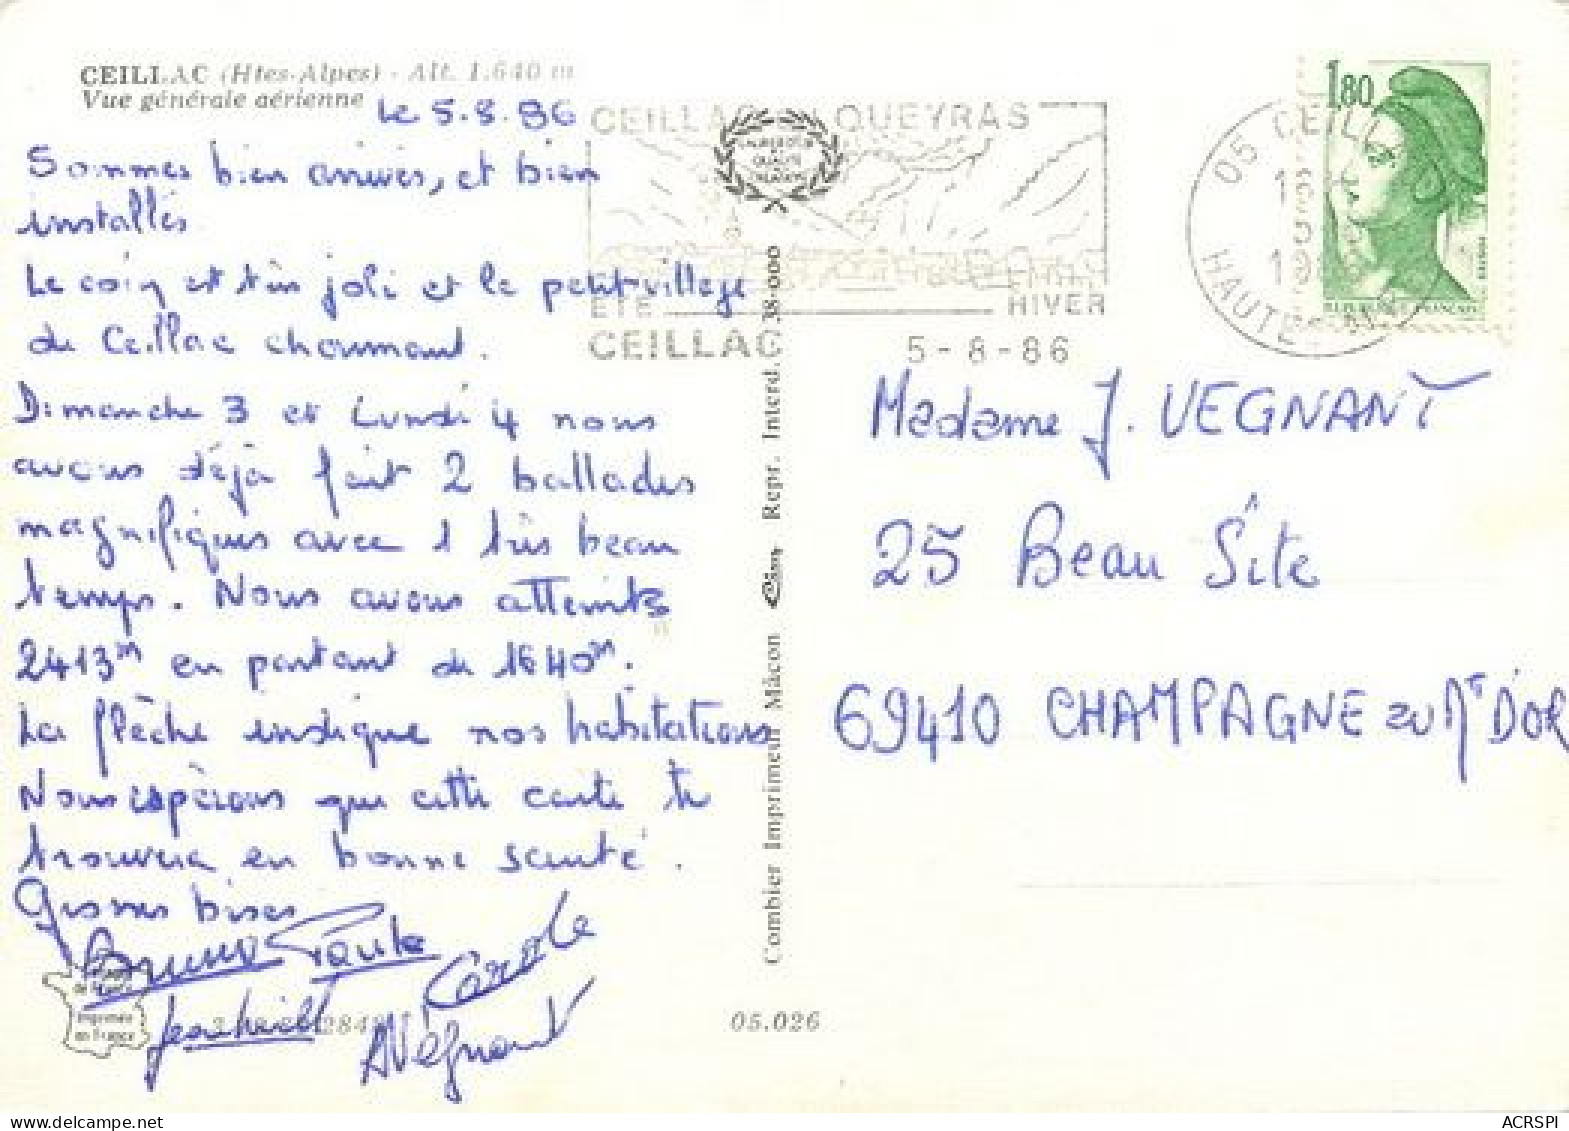 CEILLAC (Htes-Alpes) - Alt. 1.640 m
Vue générale aérienne
Le 5.8.86
Sommes bien arrivés, et bien
installés
Le coin est très joli et le petit village
de Ceillac charmant.
Dimanche 3 et Lundi 4 nous
avons déjà fait 2 ballades
magnifiques avec 1 très beau
temps. Nous avons atteints
2413m en partant de 1640m.
La flèche indique nos habitations
Nous espèrons que cette carte te
trouvera en bonne santé.
Grosses bises
Bruno Paule
Carole
AVégnant
Imprimée
en France
05.026
Combier Imprimeur Mâcon Cim Repr. Interd. 38-000
CEILLAC QUEYRAS
QUALITÉ
ETE HIVER
CEILLAC 5-8-86
05 CEILLAC
HAUTES
1,80
REPUBLIQUE FRANÇAISE
Madame J. VEGNANT
25 Beau Site
69410 CHAMPAGNE au Mt D'OR
ACRSPI